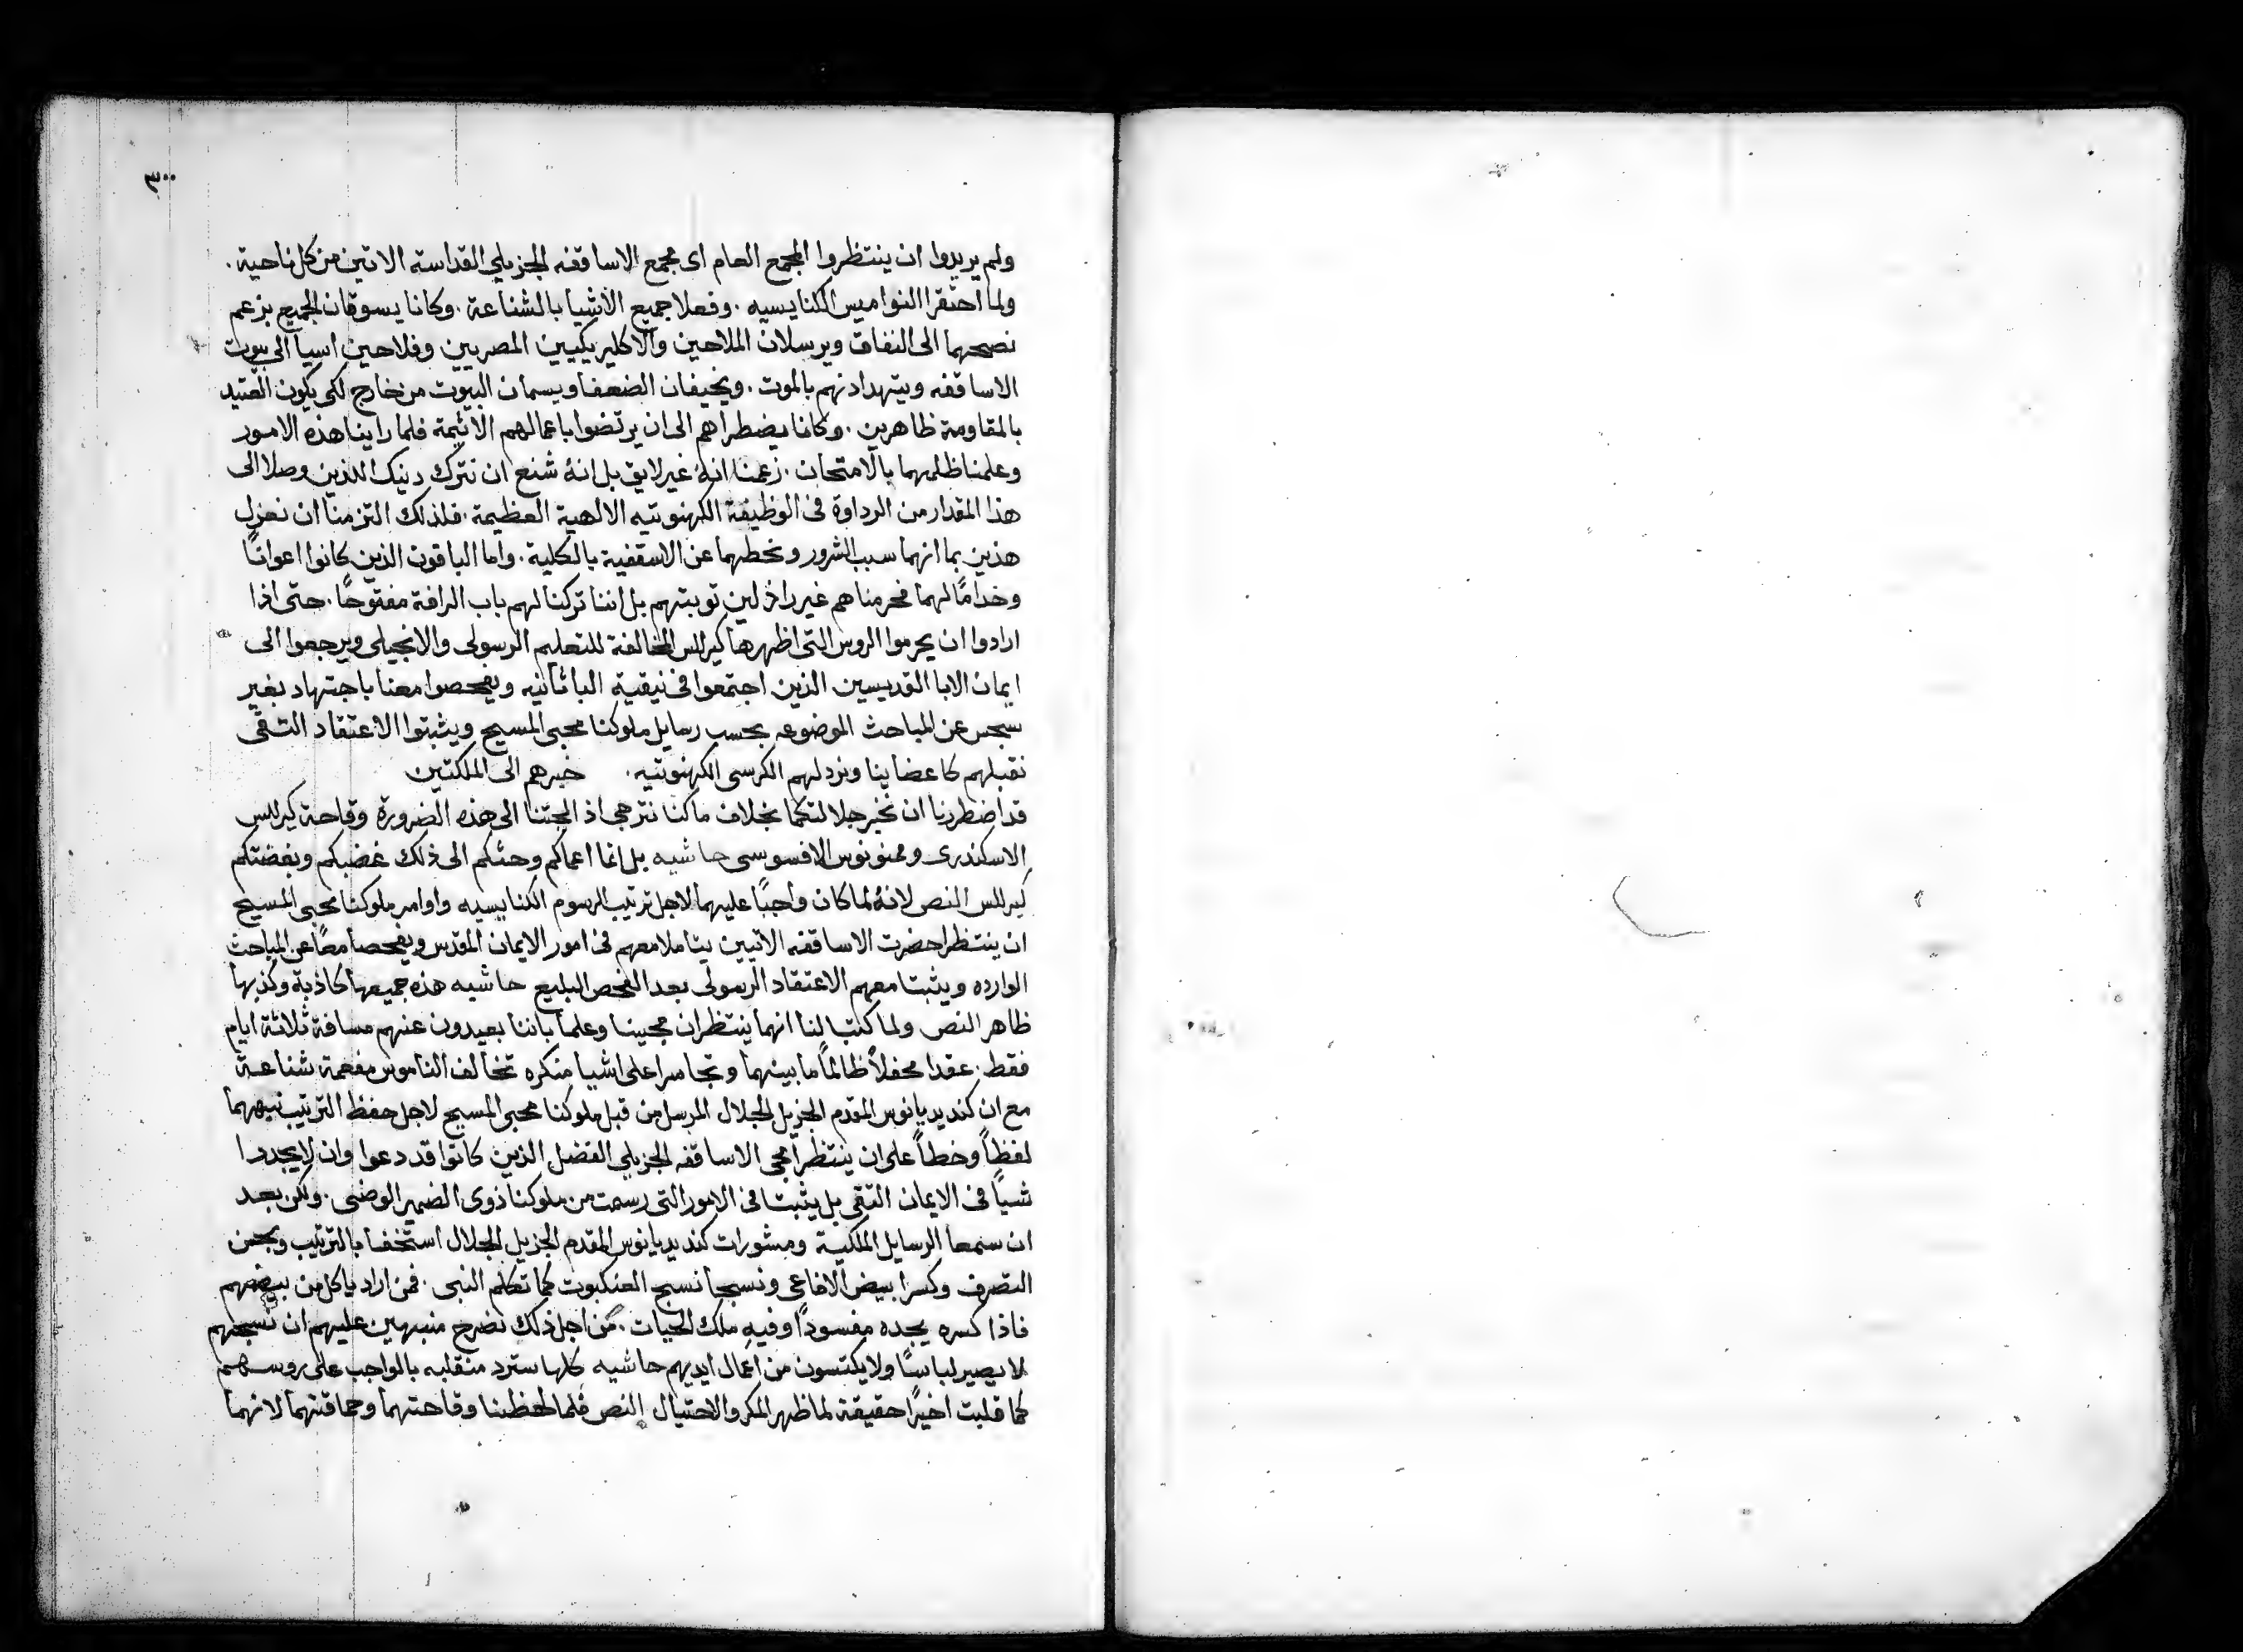 ٣٠٠
ولم يريدوا ان ينتظروا المجمع العام اى مجمع الاساقفه الجزيلي القداسته الاتين من كل ناحية.
ولما احتقرا النواميس الكنايسيه. وفعلا جميع الأشيا بالشناعة. وكانا يسوقان الجميع بزعم
نصحهما الى النفاق ويرسلان الملاحين والاكليريكيين المصريين وفلاحين اسيا الى بيوت
الاساقفه ويتهدادنهم بالموت. ويخيفان الضعفا ويسمان البيوت من خارج لكى يكون العتيد
بالمقاومة ظاهرين. وكانا يضطراهم الى ان يرتضوا باعمالهم الاثيمة فلما راينا هذه الامور
وعلمنا ظلمهما بالامتحان. زعمنا انهُ غير لايق بل انهُ شنع ان نترك دنيك اللذين وصلا الى
هذا المقدار من الرداوة فى الوظيفة الكهنوتيه الالهية العظيمة. فلذلك التزمنا ان نعزل
هذين بما انهما سبب الشرور ونحطهما عن الاسقفية بالكلية. واما الباقون الذين كانوا اعوانًا
وخدامًا لهما فحرمناهم غير راذلين توبتهم بل اننا تركنا لهم باب الرافة مفتوحًا. حتى اذا
ارادوا ان يحرموا الروس التى اظهرها كيرللس المخالفة للتعليم الرسولى والانجيلى ويرجعوا الى
ايمان الابا القديسين الذين اجتمعوا فى نيقية الباثانيه ويفحصوا معنا باجتهاد بغير
سجس عن المباحث الموضوعه بحسب رسايل ملوكنا محبى المسيح ويثبتوا الاعتقاد التقى
نقبلهم كاعضاينا ونرد لهم الكرسى الكهنوتيه. خبرهم الى الملكتين
قد اضطررنا ان نخبر جلالتكما بخلاف ما كنا نترجى اذ الجتنا الى هذه الضرورة وقاحة كيرللس
الاسكندرى وممنونوس الافسوسى حاشيه بل انما اعماكم وحثكم الى ذلك غضبكم وبغضتكم
كيرللس النص لانهُ لما كان واجبًا عليهما لاجل ترتيب الرسوم الكنايسيه واوامر ملوكنا محبى المسيح
ان ينتظرا حضرت الاساقفه الاتيين يتاملا معهم فى امور الايمان المقدس ويفحصا معًا عن المباحث
الوارده ويثبتا معهم الاعتقاد الرسولى بعد الفحص البليغ حاشيه هذه جميعها كاذبة وكذبها
ظاهر النص ولما كتبا لنا انهما ينتظران مجينا وعلما باننا بعيدون عنهم مسافة ثلاثة ايام
فقط. عقدا محفلاً ظالمًا ما بينهما وتجاسرا على اشيا منكره تخالف الناموس مفعمة شناعة
مع ان كنديديانوس المقدم الجزيل الجلال المرسل من قبل ملوكنا محبى المسيح لاجل حفظ الترتيب نبههما
لفظًا وخطًا على ان ينتظرا مجى الاساقفه الجزيلي الفضل الذين كانوا قد دعوا وان لا يجددا
شيًا فى الايمان التقى بل يثبتا فى الامور التى رسمت من ملوكنا ذوى الضمير الوضى. ولكن بعد
ان سمعا الرسايل الملكية ومشورات كنديديانوس المقدم الجزيل الجلال استخفا بالترتيب وبحسن
التصرف وكسرا بيض الافاعى ونسجا نسج العنكبوت كما تكلم النبى. فمن اراد ياكل من بيضهم
فاذا كسره يجده مفسودًا وفيهِ ملك الحيات. من اجل ذلك نضرخ منبهين عليهم ان نسجهم
لا يصير لباسًا ولا يكتسون من اعمال ايديهم حاشيه كلها سترد منقلبه بالواجب على روسهم
كما قلبت اخيرًا حقيقة لما ظهر المكر والاحتيال النص فلما لحظنا وقاحتهما وحماقتهما لانهما